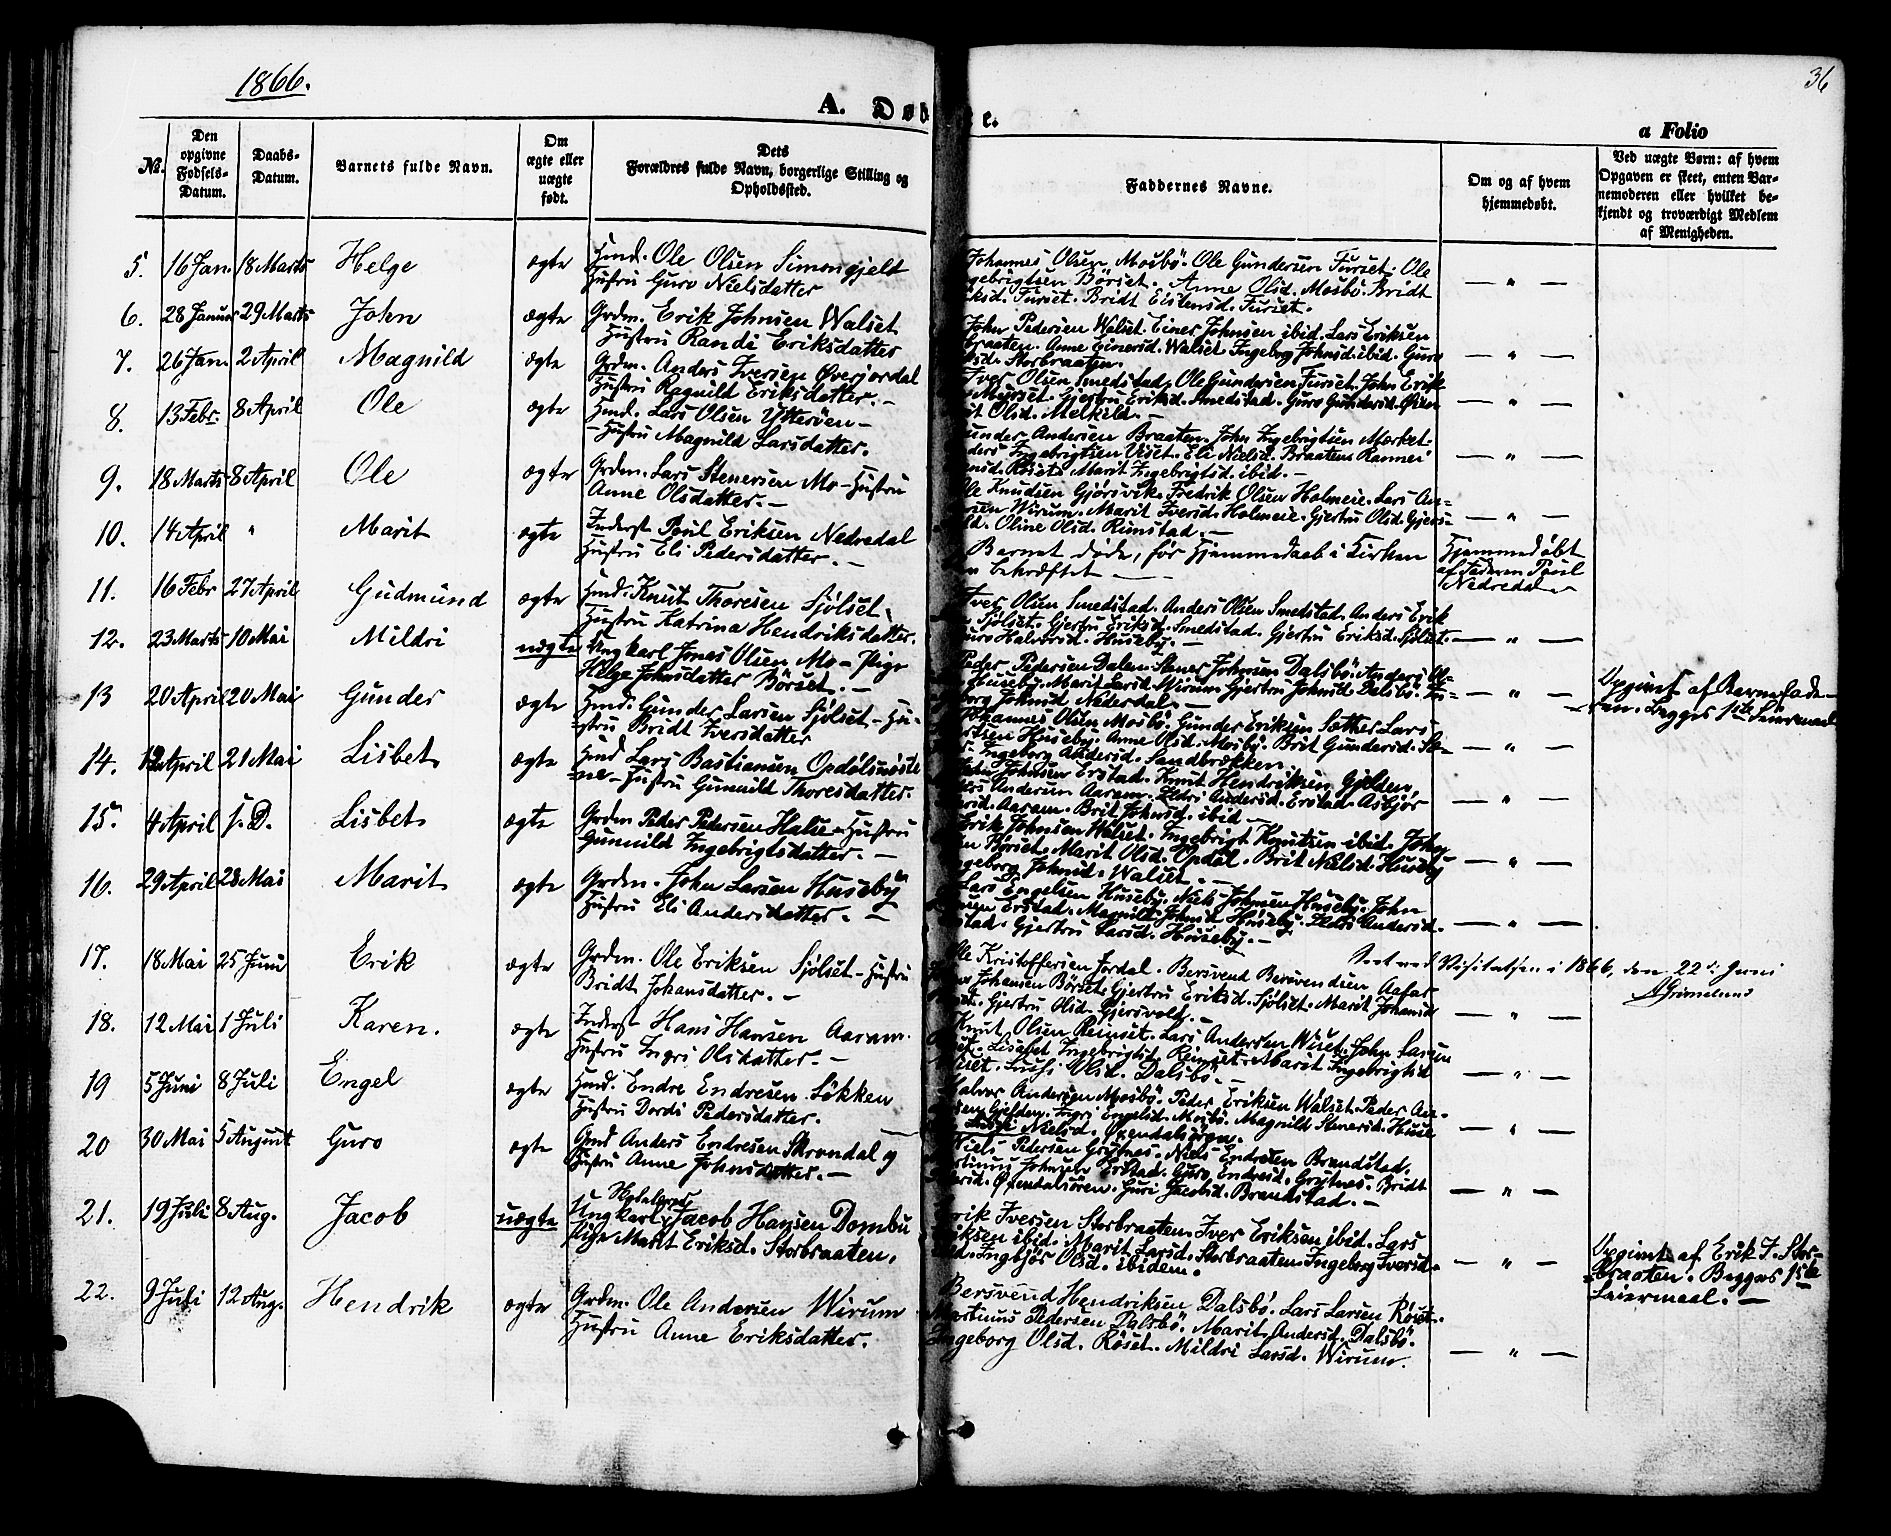 1866.
36
A. Døb e.
a Folio
No.
Den opgivne Fødsels-Datum.
Daabs-Datum.
Barnets fulde Navn.
Om ægte eller uægte født.
Dets Forældres fulde Navn, borgerlige Stilling og Opholdssted.
Faddernes Navne.
Om og af hvem hjemmedøbt.
Ved uægte Børn: af hvem
Opgaven er skeet, enten Bar-
nemoderen eller hvilket be-
kjendt og troværdigt Medlem
af Menigheden.
5. 16 Jan. 18 Marts Helge ægte Hmd. Ole Olsen Simongjelt
Hustru Guro Nielsdatter
Johannes Olsen Mosbö. Ole Gundersen Furset. Ole
Börset. Anne Olsd. Mosbö. Bridt
Furset. Bridt Eistensd. Furset.
6. 28 Januar 29 Marts John ægte Grdm. Erik Johnsen Walset
Hustru Randi Eriksdatter
John Pedersen Walset. Einer Johnsen ibid. Lars Eriksen
Braaten. Anne Einersd. Walset. Ingeborg Johnsd. ibid. Guro
Storbraaten.
7. 26 Jan. 2 April Magnild ægte Grdm. Anders Iversen Øverjordal
Hustru Ragnild Eriksdatter. —
Iver Olsen Smedstad. Ole Gundersen Furset. John Erik
Gjertru Eriksd. Smedstad. Guro Gundersd.
Olsd. Melkild. —
8. 13 Febr. 8 April Ole ægte Hmd. Lars Olsen Ytterøen —
— Hustru Magnild Larsdatter.
Andersen Braaten. John Ingebrigtsen Mærket.
Ingebrigtsen Viset. Eli Nielsd. Braaten Rannei
Röset. Marit Ingebrigtsd. ibid. —
9. 18 Marts 8 April Ole ægte Grdm. Lars Stenersen Mo — Hustru
Anne Olsdatter. —
Ole Knudsen Gjörsvik. Fredrik Olsen Holmeie. Lars An-
Wirum. Marit Iversd. Holmeie. Gjertru Olsd.
Oline Olsd. Rimstad. —
10. 14 April " Marit ægte Inderst Poul Eriksen Nedredal
Hustru Eli Pedersdatter. —
Barnet døde, før Hjemmedaab i Kirken
bekræftet —
Hjemmedøbt
af Faderen Poul
Nedredal —
11. 16 Febr 27 April Gudmund ægte Hmd. Knut Thoresen Sjölset.
Hustru Katrina Hendriksdatter.
Iver Olsen Smedstad. Anders Olsen Smedstad. Anders Erik
Sjölset. Gjertru Eriksd. Smedstad. Gjertru Eriksd. Sjölset.
Guro Halvorsd. Huseby. —
12. 23 Marts 10 Mai Mildri uægte Ungkarl Jonas Olsen Mo — Pige
Helge Johnsdatter Börset. —
Peder Pedersen Dalen. Stener Johnsen Dalsbö. Anders Ol-
Huseby. Marit Larsd. Wirum. Gjertru Johnsd. Dalsbö. In-
Johnsd. Nedredal. —
Opgivet af Barnefade-
ren. Begges 1ste Leiermaal
13 20 April 20 Mai Gunder ægte Hmd. Gunder Larsen Sjölset — Hu-
stru Bridt Iversdatter
Johannes Olsen Mosbö. Gunder Eriksen Sæther. Lars
Huseby. Anne Olsd. Mosbö. Brit Gundersd. Sæ-
Ingeborg Andersd. Sandbrækken.
14. 12 April 21 Mai Lisbet ægte Hmd Lars Bastiansen Opdølsmoste
ne — Hustru Gunnild Thoresdatter.
Johnsen Erstad. Knut Hendriksen Gjelden,
Andersen Aaram. Eldri Andersd. Erstad. Asbjör
Aaram. Brit Johnsd. ibid —
15. 4 April s. D. Lisbet ægte Grdm Peder Pedersen Halse — Hustru
Gunnild Ingebrigtsdatter. —
Erik Johnsen Walset. Ingebrigt Knutsen ibid. John
Börset. Marit Olsd. Opdal. Brit Nielsd. Huseby
Ingeborg Johnsd. Walset. —
16. 29 April 28 Mai Marit ægte Grdm. John Larsen Huseby
Hustru Eli Andersdatter. —
Lars Engelsen Huseby. Niels Johnsen Huseby. John
Erstad. Magnild Johnsd. Huseby. Eldri Andersd.
Gjertru Larsd. Huseby. —
17. 18 Mai 25 Juni Erik ægte Grdm. Ole Eriksen Sjölset — Hustru
Bridt Johansdatter. —
Seet ved Visitatsen i 1866, den 22de Juni
AGrimelund
Ole Kristoffersen Jordal. Bersvend Bersvendsen Aafar-
Johansen Börset. Gjertru Eriksd. Sjölset. Marit Johansd
Gjertru Olsd. Gjersvold. —
18. 12 Mai 1 Juli Karen. ægte Inderst Hans Hansen Aaram.
Hustru Ingri Olsdatter. —
Knut Olsen Reinset. Lars Andersen Wiset. John Larsen
Lisabet Ingebrigtsd. Reinset. Marit Ingebrigtsd
Olsd. Dalsbö. —
19 5 Juni 8 Juli Engel ægte Hmd. Endre Endresen Løkken
Hustru Dordi Pedersdatter.
Halvor Andersen Mosbö. Peder Eriksen Walset. Peder An-
Gjelden. Ingri Engelsd. Mosbö. Magnild Stenersd. Huse
Nielsd. Øxendalsören.
20 30 Mai 5 August Guro ægte Gmd Anders Endresen Skrondal og
Hustru Anne Johnsdatter. —
Niels Pedersen Grytnes. Niels Endresen Brandstad.
Johnsen Erstad. Guro Endresd. Grytnes. Bridt
Øxendalsören. Guri Jacobsd. Brandstad. —
21. 19 Juli 8 Aug. Jacob uægte Ungkarl Jacob Hansen Dombu
Pige Marit Eriksd. Storbraaten.
Erik Iversen Storbraaten. Iver Eriksen ibid. Lars
Eriksen ibid. Marit Larsd. Storbraaten. Ingeborg Iversd.
Ingbjör Olsd. ibidem.
Opgivet af Erik I. Stor-
braaten. Begges 1ste
Leiermaal. —
22. 9 Juli 12 Aug. Hendrik ægte Grdm. Ole Andersen Wirum
Hustru Anne Eriksdatter.
Bersvend Hendriksen Dalsbö. Lars Larsen Röset.
Martinus Pedersen Dalsbö. Marit Andersd. Dalsbö.
Ingeborg Olsd. Röset. Mildri Larsd. Wirum.